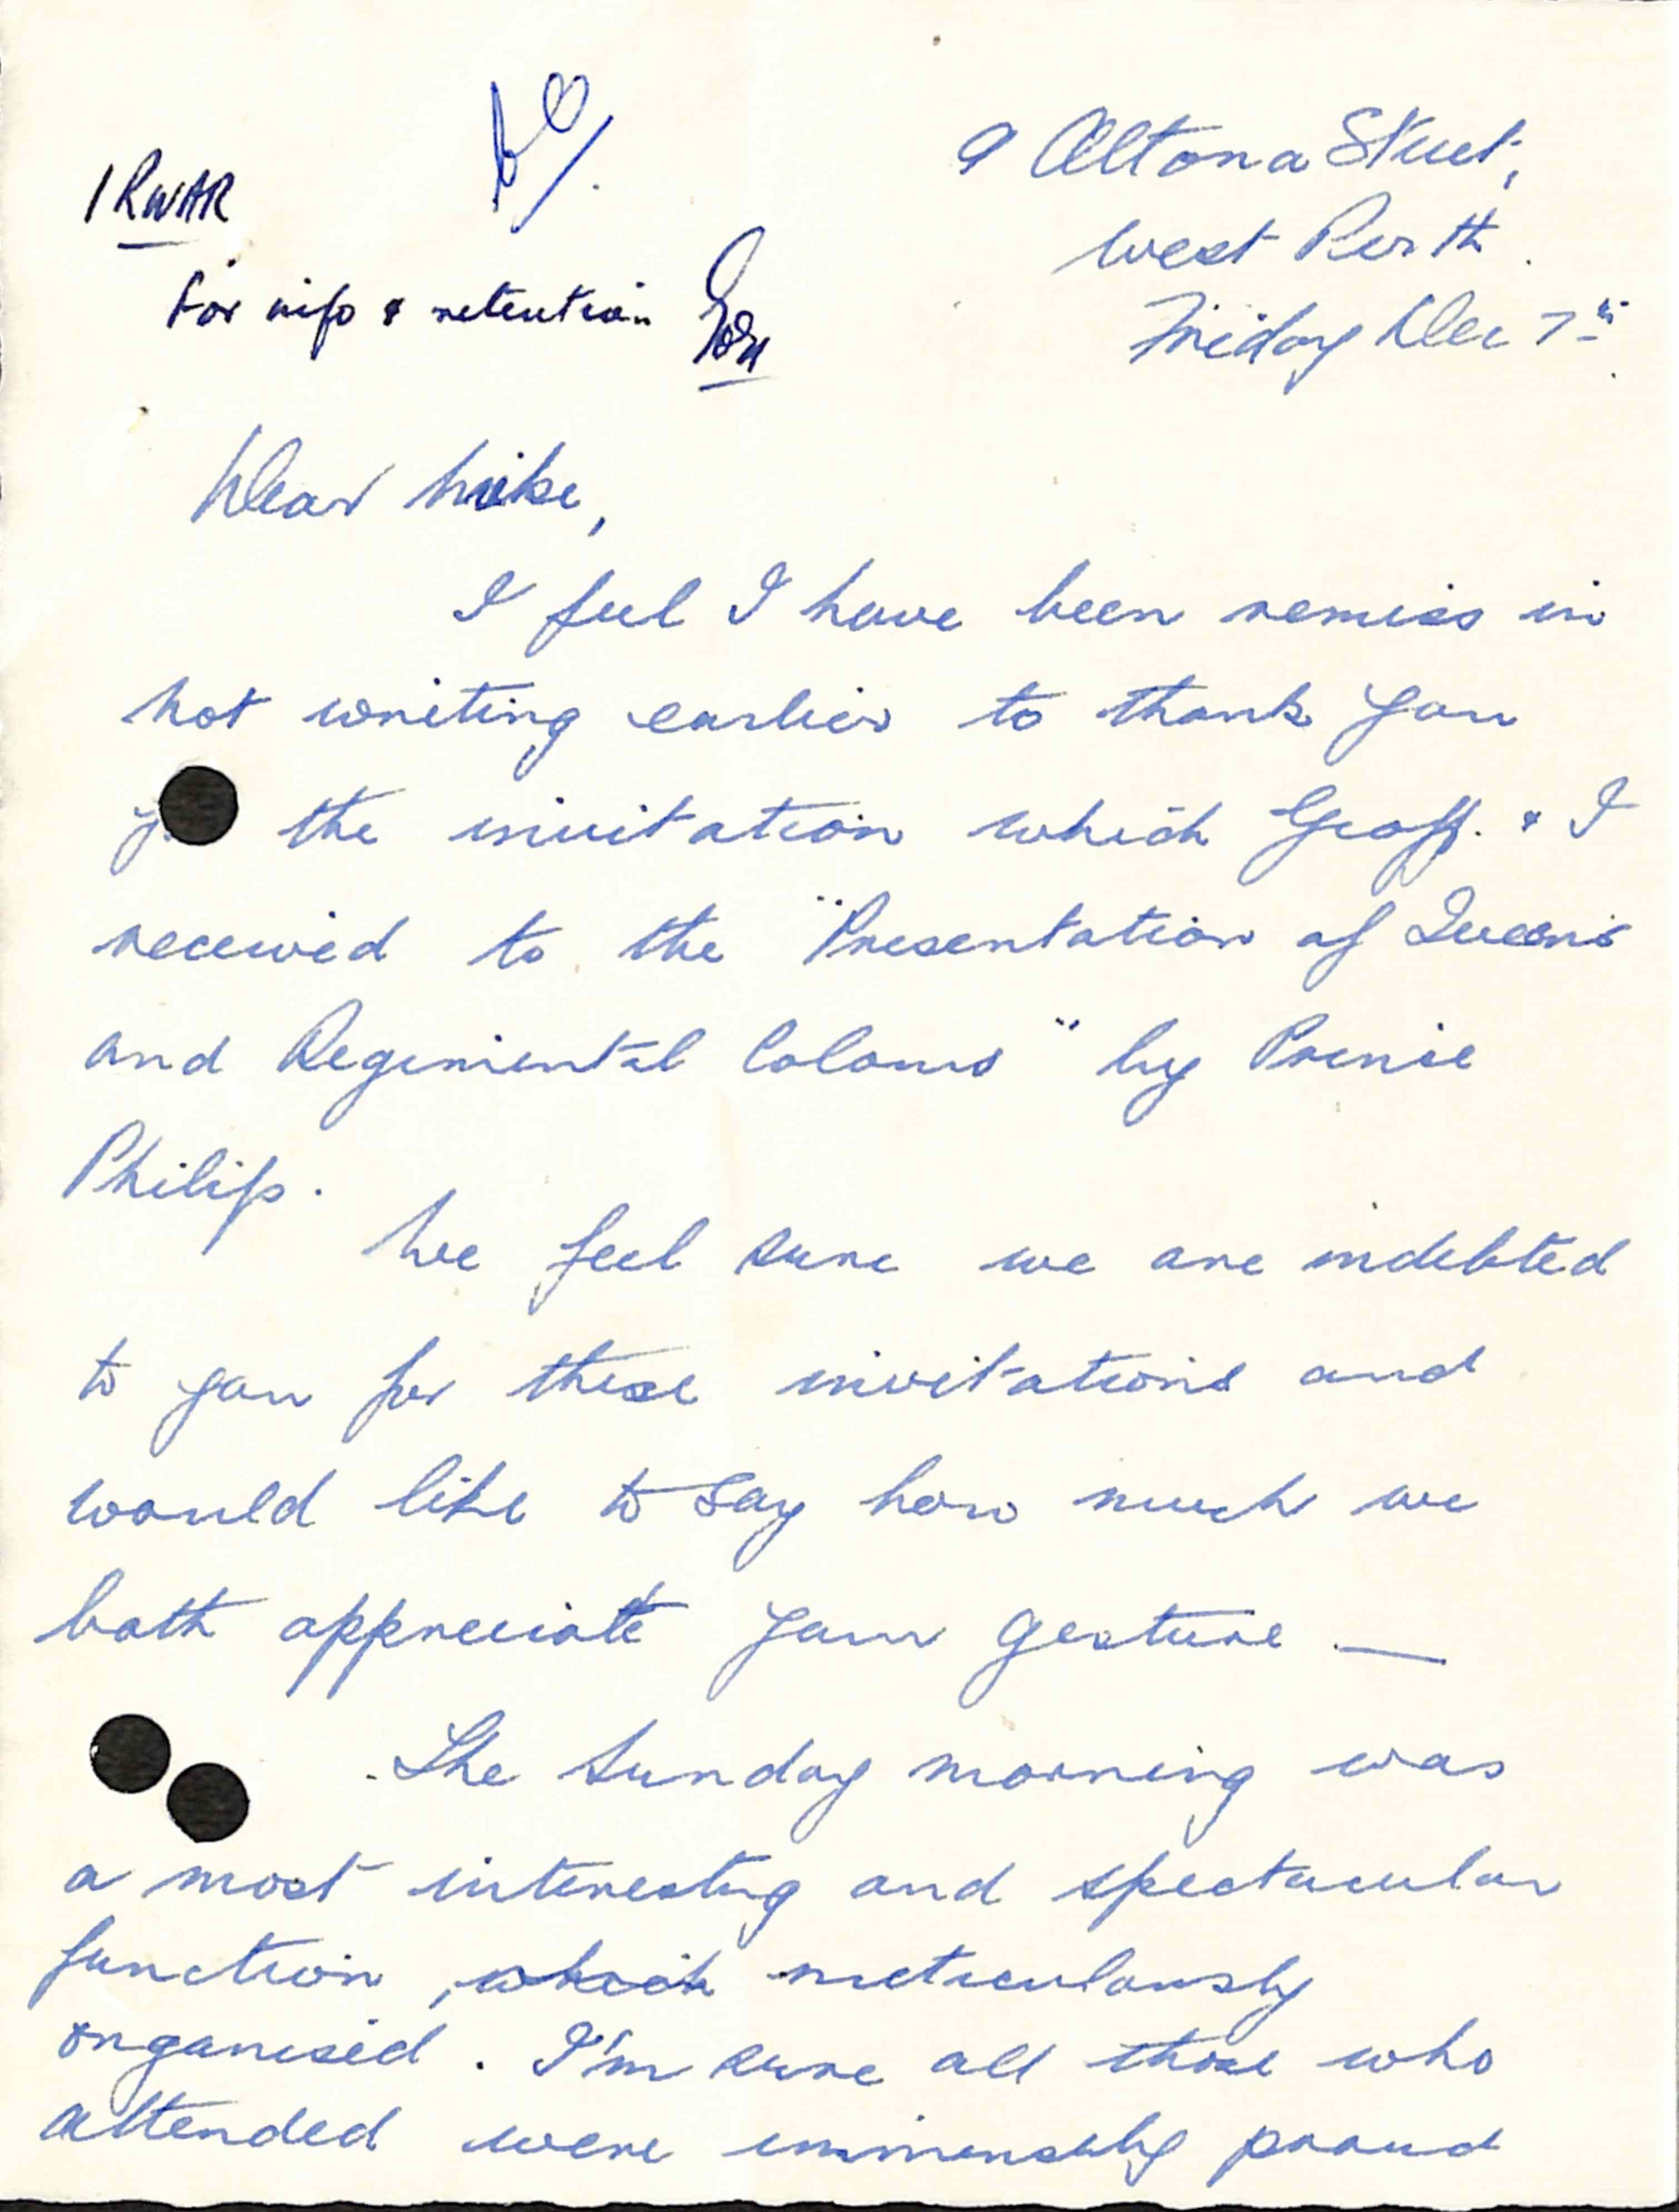 9 Altona Street,
West Perth.
Friday Dec 7th
1 RWAR
For info & retention
Dear Mike,
I feel I have been remiss in
not writing earlier to thank you
the invitation which Geoff. & I
received to the "Presentation of Queens
and Regimental Colours" by Prince
Philip.
We feel sure we are indebted
to you for these invitations and
would like to say how much we
both appreciate your gesture —
The Sunday morning was
a most interesting and spectacular
function, which meticulously
organised. I'm sure all those who
attended were immensely proud